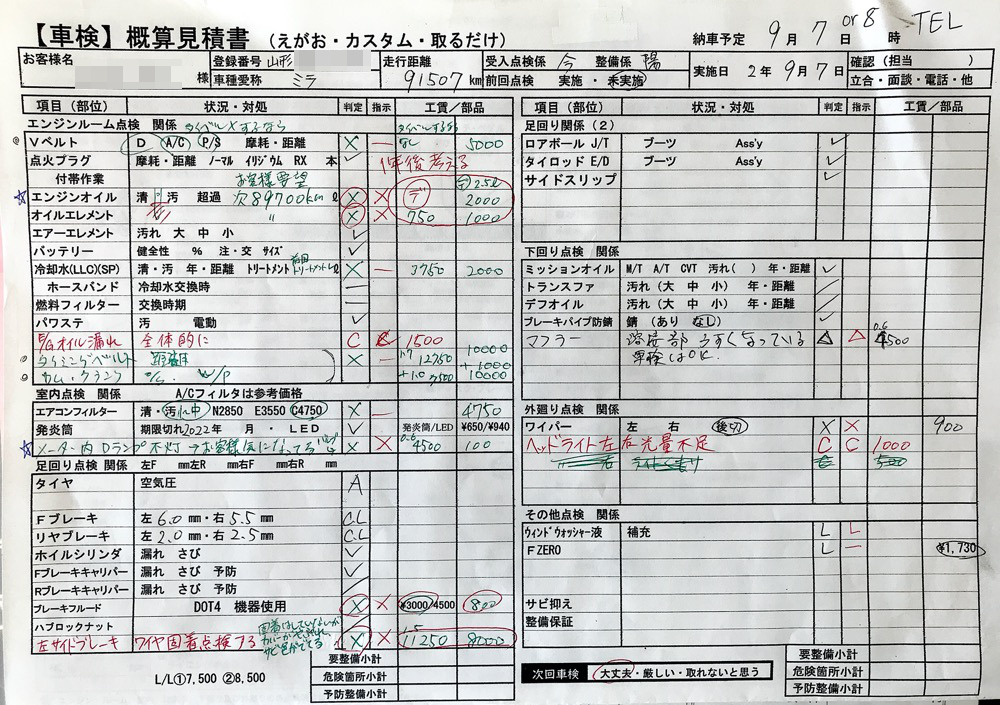 【車検】概算見積書 (えがお・カスタム・取るだけ) 納車予定 9月 7日 or 8 時 TEL
お客様名 様
登録番号 山形
車種愛称 ミラ
走行距離 91507 km
受入点検係 今 整備係 陽
前回点検 実施・未実施
実施日 2年 9月 7日
確認(担当 )
立合・面談・電話・他
項目(部位) 状況・対処 判定 指示 工賃/部品
エンジンルーム点検 関係
Vベルト D A/C P/S 摩耗・距離 X — なし 5000
点火プラグ 摩耗・距離 ノーマル イリジウム RX 本 ✓ 1年後考える
付帯作業 お客様要望 2.5ℓ
エンジンオイル 清・汚 超過 次89700km ℓ X X デ 2000
オイルエレメント 〃 X X 750 1000
エアーエレメント 汚れ 大 中 小 ✓
バッテリー 健全性 % 注・交 サイズ ✓
冷却水(LLC)(SP) 清・汚 年・距離 トリートメント 前回トリートメント X — 3750 2000
ホースバンド 冷却水交換時 —
燃料フィルター 交換時期 —
パワステ 汚 電動 ✓
E/Gオイル漏れ 全体的に C C 1500
タイミングベルト 距離 X — 1.7 12750 10000
カム・クランク O/S W/P +1.0 7500 +1000 10000
室内点検 関係 A/Cフィルタは参考価格
エアコンフィルター 清・汚れ中 N2850 E3550 C4750 X — 4750
発炎筒 期限切れ2022年 月・LED ✓ 発炎筒 ¥650/¥940
メーター内Dランプ不灯→お客様気になってる X X 0.6 4500 100
足回り点検 関係 左F ㎜左R ㎜右F ㎜右R ㎜
タイヤ 空気圧 A
Fブレーキ 左 6.0 ㎜・右 5.5 ㎜ C.L
リヤブレーキ 左 2.0 ㎜・右 2.5 ㎜ C.L
ホイルシリンダ 漏れ さび ✓
Fブレーキキャリパー 漏れ さび 予防 ✓
Rブレーキキャリパー 漏れ さび 予防
ブレーキフルード DOT4 機器使用 X X ¥3000/4500 800
ハブロックナット
左サイドブレーキ ワイヤ固着点検する X X 1.5 11250 8000
L/L①7,500 ②8,500
要整備小計
危険箇所小計
予防整備小計
項目(部位) 状況・対処 判定 指示 工賃/部品
足回り関係(2)
ロアボール J/T ブーツ Ass'y ✓
タイロッド E/D ブーツ Ass'y ✓
サイドスリップ ✓
下回り点検 関係
ミッションオイル M/T A/T CVT 汚れ( ) 年・距離 ✓
トランスファ 汚れ(大 中 小) 年・距離
デフオイル 汚れ(大 中 小) 年・距離
ブレーキパイプ防錆 錆(あり なし)
マフラー 溶接部うすくなっている △ △ 0.6 4500
車検はOK.
外廻り点検 関係
ワイパー 左 右 後切 X X 900
ヘッドライト左右光量不足 C C 1000
その他点検 関係
ウィンドウォッシャー液 補充 L L
FZERO L — ¥1,730
サビ抑え
整備保証
次回車検 大丈夫・厳しい・取れないと思う
要整備小計
危険箇所小計
予防整備小計